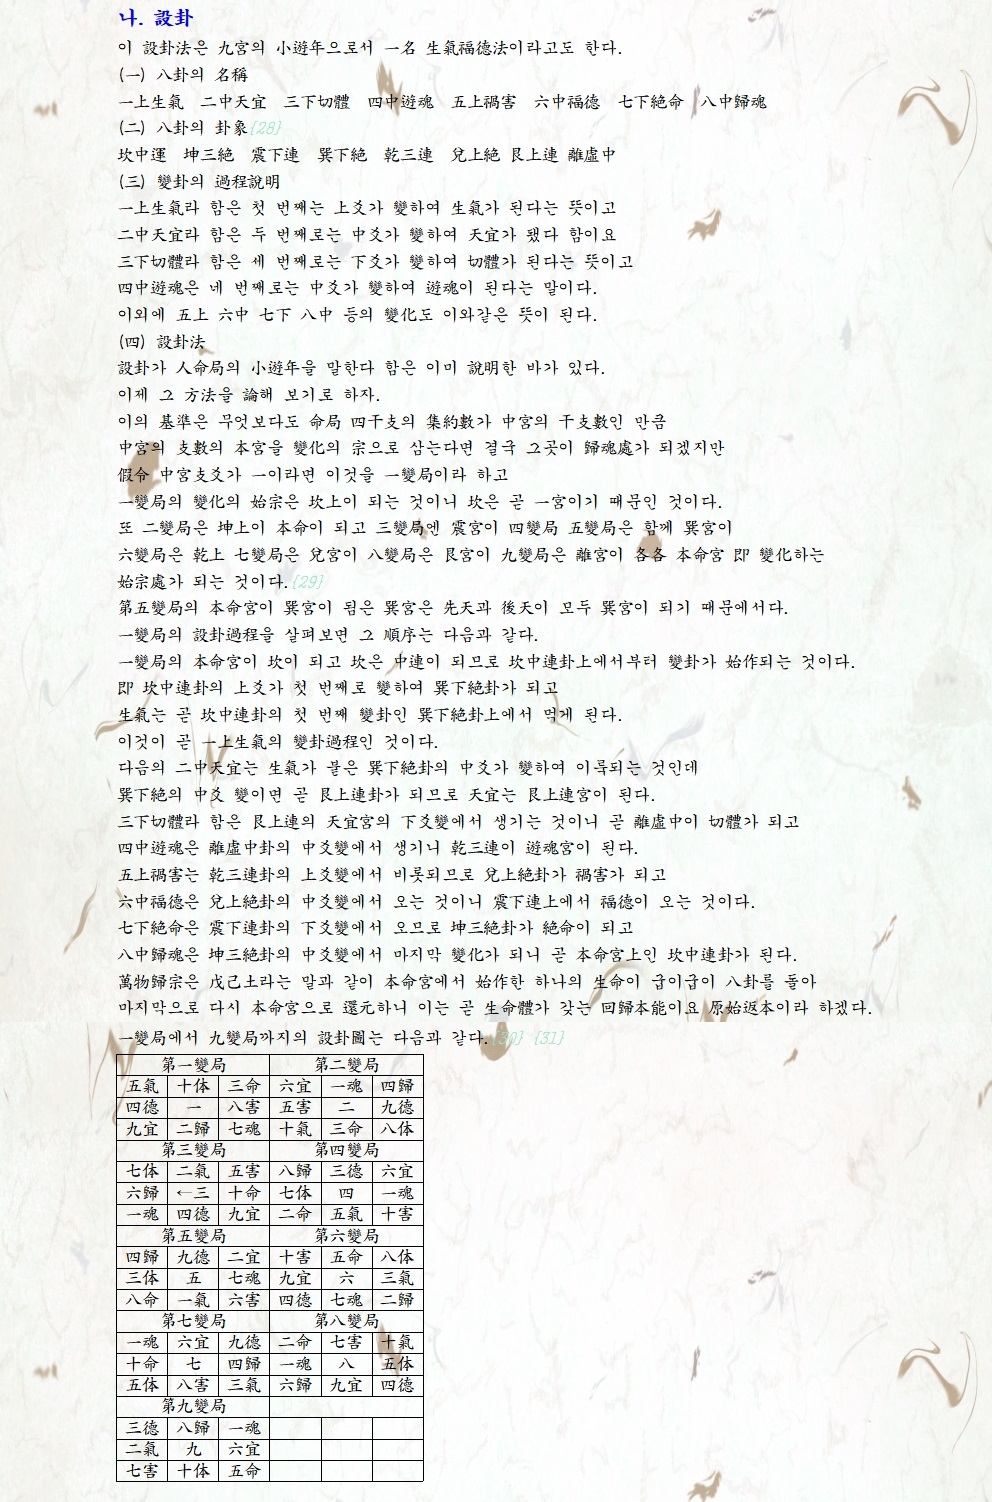 나. 設卦
이 設卦法은 九宮의 小遊年으로서 一名 生氣福德法이라고도 한다.
(一) 八卦의 名稱
一上生氣 二中天宜 三下切體 四中遊魂 五上禍害 六中福德 七下絶命 八中歸魂
(二) 八卦의 卦象{28}
坎中運 坤三絶 震下連 巽下絶 乾三連 兌上絶 艮上連 離虛中
(三) 變卦의 過程說明
一上生氣라 함은 첫 번째는 上爻가 變하여 生氣가 된다는 뜻이고
二中天宜라 함은 두 번째로는 中爻가 變하여 天宜가 됐다 함이요
三下切體라 함은 세 번째로는 下爻가 變하여 切體가 된다는 뜻이고
四中遊魂은 네 번째로는 中爻가 變하여 遊魂이 된다는 말이다.
이외에 五上 六中 七下 八中 등의 變化도 이와같은 뜻이 된다.
(四) 設卦法
設卦가 人命局의 小遊年을 말한다 함은 이미 說明한 바가 있다.
이제 그 方法을 論해 보기로 하자.
이의 基準은 무엇보다도 命局 四干支의 集約數가 中宮의 干支數인 만큼
中宮의 支數의 本宮을 變化의 宗으로 삼는다면 결국 그곳이 歸魂處가 되겠지만
假令 中宮支爻가 一이라면 이것을 一變局이라 하고
一變局의 變化의 始宗은 坎上이 되는 것이니 坎은 곧 一宮이기 때문인 것이다.
또 二變局은 坤上이 本命이 되고 三變局엔 震宮이 四變局 五變局은 함께 巽宮이
六變局은 乾上 七變局은 兌宮이 八變局은 艮宮이 九變局은 離宮이 各各 本命宮 即 變化하는
始宗處가 되는 것이다.{29}
第五變局의 本命宮이 巽宮이 됨은 巽宮은 先天과 後天이 모두 巽宮이 되기 때문에서다.
一變局의 設卦過程을 살펴보면 그 順序는 다음과 같다.
一變局의 本命宮이 坎이 되고 坎은 中連이 되므로 坎中連卦上에서부터 變卦가 始作되는 것이다.
即 坎中連卦의 上爻가 첫 번째로 變하여 巽下絶卦가 되고
生氣는 곧 坎中連卦의 첫 번째 變卦인 巽下絶卦上에서 먹게 된다.
이것이 곧 一上生氣의 變卦過程인 것이다.
다음의 二中天宜는 生氣가 붙은 巽下絶卦의 中爻가 變하여 이룩되는 것인데
巽下絶의 中爻 變이면 곧 艮上連卦가 되므로 天宜는 艮上連宮이 된다.
三下切體라 함은 艮上連의 天宜宮의 下爻變에서 생기는 것이니 곧 離虛中이 切體가 되고
四中遊魂은 離虛中卦의 中爻變에서 생기니 乾三連이 遊魂宮이 된다.
五上禍害는 乾三連卦의 上爻變에서 비롯되므로 兌上絶卦가 禍害가 되고
六中福德은 兌上絶卦의 中爻變에서 오는 것이니 震下連上에서 福德이 오는 것이다.
七下絶命은 震下連卦의 下爻變에서 오므로 坤三絶卦가 絶命이 되고
八中歸魂은 坤三絶卦의 中爻變에서 마지막 變化가 되니 곧 本命宮上인 坎中連卦가 된다.
萬物歸宗은 戊己土라는 말과 같이 本命宮에서 始作한 하나의 生命이 굽이굽이 八卦를 돌아
마지막으로 다시 本命宮으로 還元하니 이는 곧 生命體가 갖는 回歸本能이요 原始返本이라 하겠다.
一變局에서 九變局까지의 設卦圖는 다음과 같다.{30} {31}
第一變局 第二變局
五氣 十体 三命 六宜 一魂 四歸
四德 一 八害 五害 二 九德
九宜 二歸 七魂 十氣 三命 八体
第三變局 第四變局
七体 二氣 五害 八歸 三德 六宜
六歸 ←三 十命 七体 四 一魂
一魂 四德 九宜 二命 五氣 十害
第五變局 第六變局
四歸 九德 二宜 十害 五命 八体
三体 五 七魂 九宜 六 三氣
八命 一氣 六害 四德 七魂 二歸
第七變局 第八變局
一魂 六宜 九德 二命 七害 十氣
十命 七 四歸 一魂 八 五体
五体 八害 三氣 六歸 九宜 四德
第九變局
三德 八歸 一魂
二氣 九 六宜
七害 十体 五命